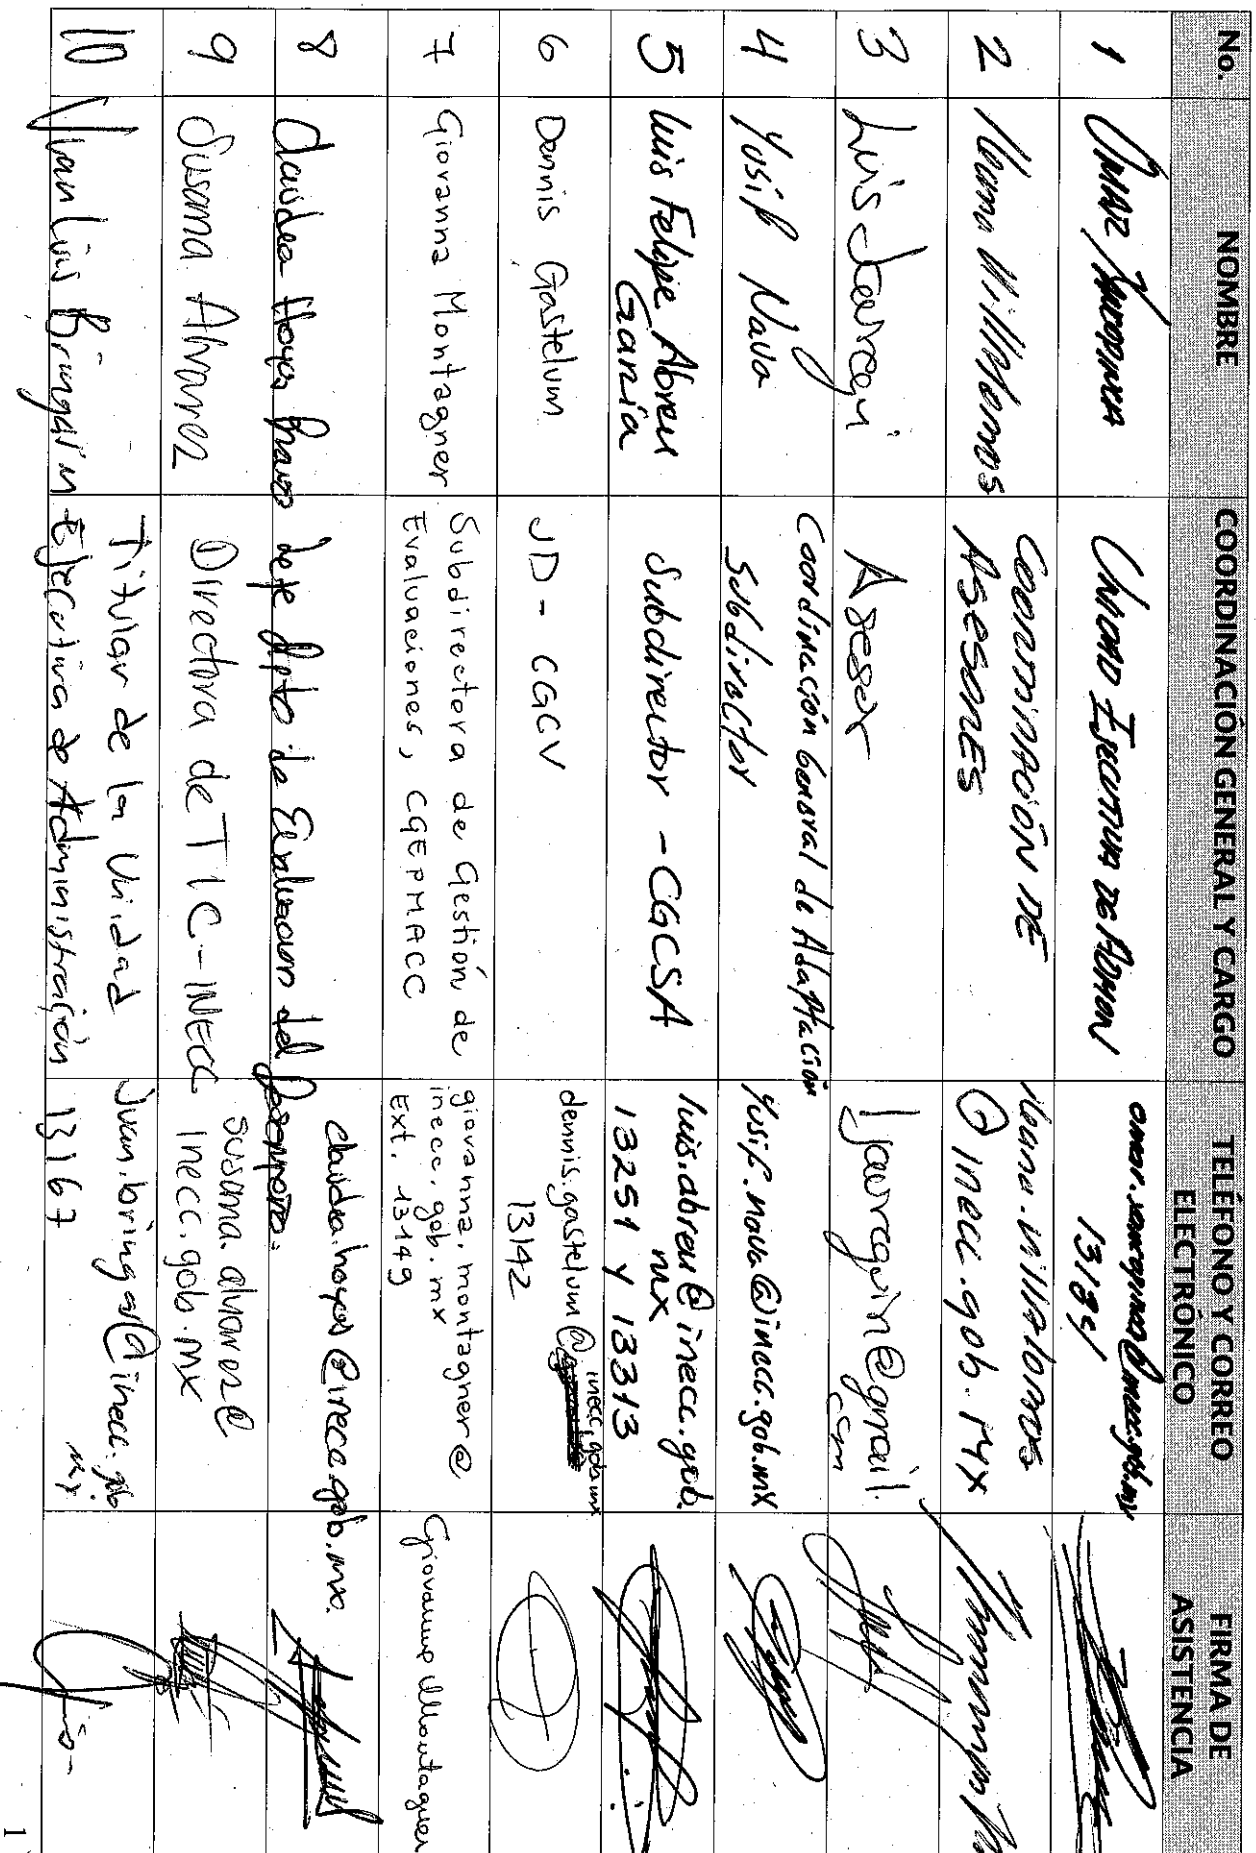 No. NOMBRE COORDINACIÓN GENERAL Y CARGO TELÉFONO Y CORREO ELECTRÓNICO FIRMA DE ASISTENCIA
1 OMAR UNIDAD EJECUTIVA DE ADMON
13184
2 Villalobos COORDINACIÓN DE
ASESORES
villalobos
@inecc.gob.mx
3 Luis Jauregui Asesor ljaureguin@gmail.
com
4 Yosif Nava Coordinación General de Adaptación
Subdirector
Yosif.nava@inecc.gob.mx
5 Luis Felipe Abreu
García
Subdirector - CGCSA
luis.abreu@inecc.gob.
mx
13251 y 13313
6 Dennis Gastelum JD - CGCV
dennis.gastelum@
inecc.gob.mx
13142
7 Giovanna Montagner Subdirectora de Gestión de
Evaluaciones, CGEPMACC
giovanna.montagner@
inecc.gob.mx
Ext. 13149
Giovanna Montagner
8 Claudia Hoyos Bravo Jefe Dpto de Evaluacion del Desempeño.
claudia.hoyos@inecc.gob.mx.
9 Susana Alvarez Directora de TIC-INECC
susana.alvarez@
inecc.gob.mx
10 Juan Luis Bringas M Titular de la Unidad
Ejecutiva de Administración
juan.bringas@inecc.gob
mx.
13167
1